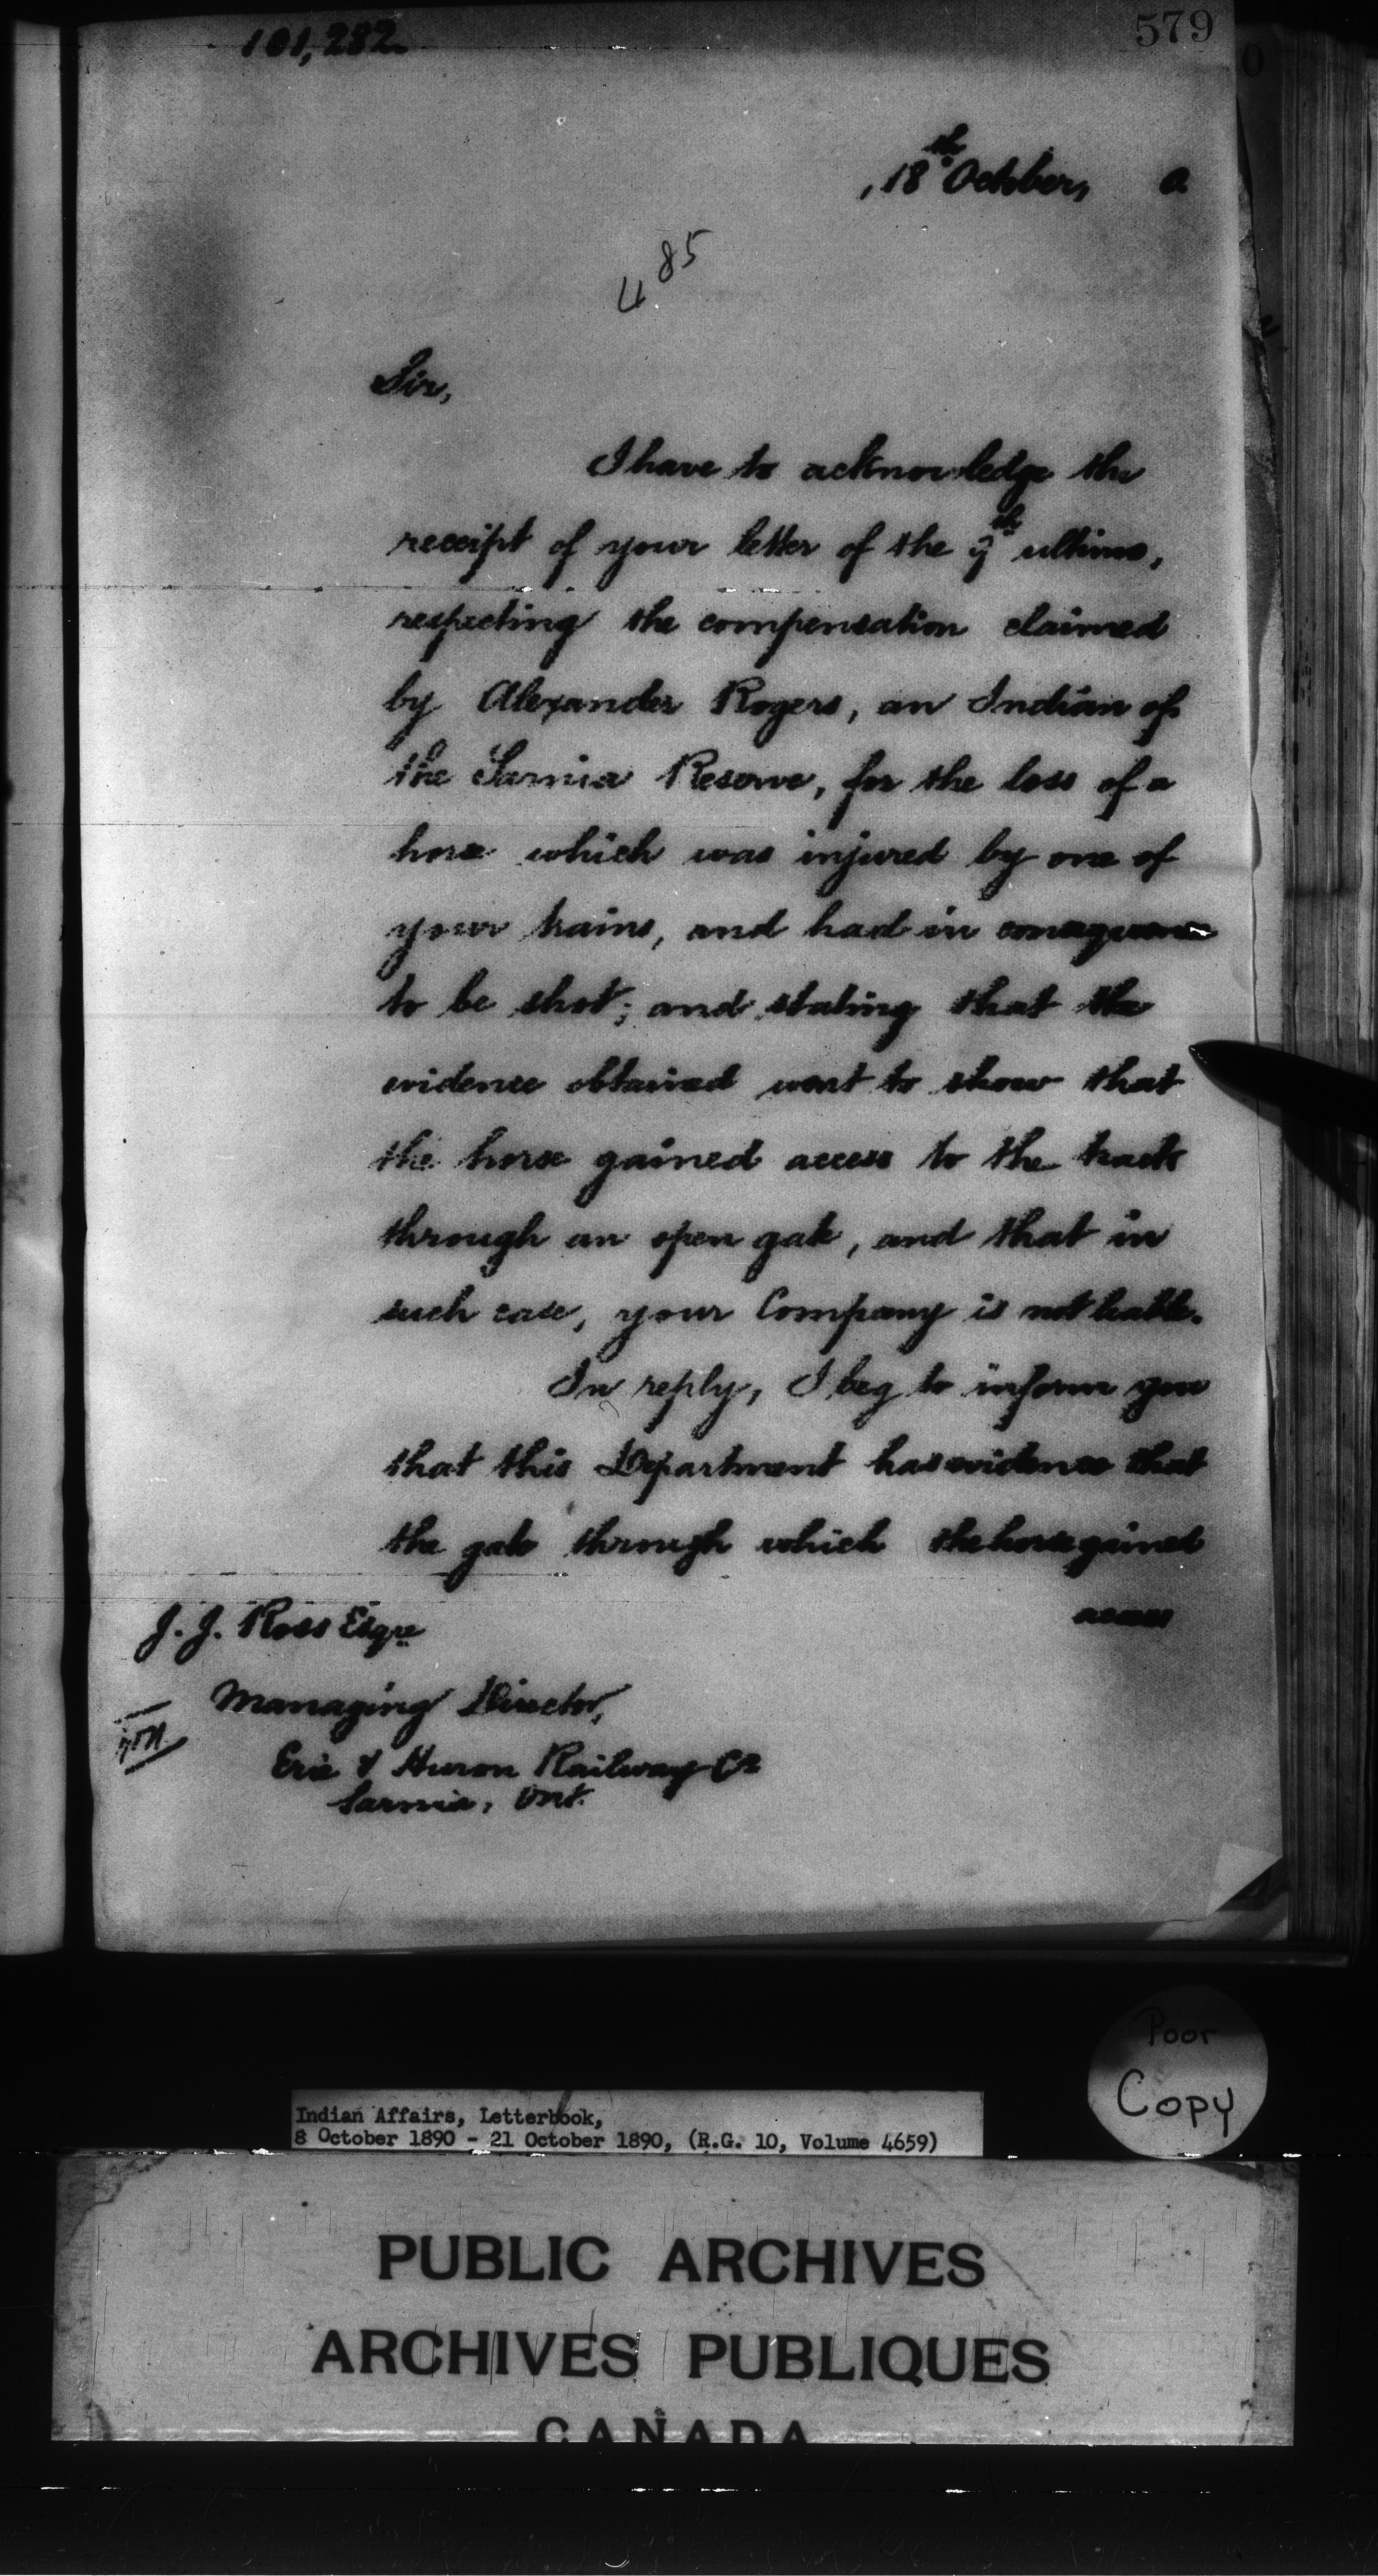 101,282.
579
18th October, 0
485
Sir,
I have to acknowledge the
receipt of your letter of the 9th ultimo,
respecting the compensation claimed
by Alexander Rogers, an Indian of
the Sarnia Reserve, for the loss of a
horse which was injured by one of
your trains, and had in consequence
to be shot; and stating that the
evidence obtained went to show that
the horse gained access to the track
through an open gate, and that in
such case, your Company is not liable.
In reply, I beg to inform you
that this Department has evidence that
the gate through which the horse gained
access
J. J. Ross Esqre
Managing Director,
Erie & Huron Railway Co
Sarnia, Ont.
Poor
Copy
Indian Affairs, Letterbook,
8 October 1890 - 21 October 1890, (R.G. 10, Volume 4659)
PUBLIC ARCHIVES
ARCHIVES PUBLIQUES
CANADA